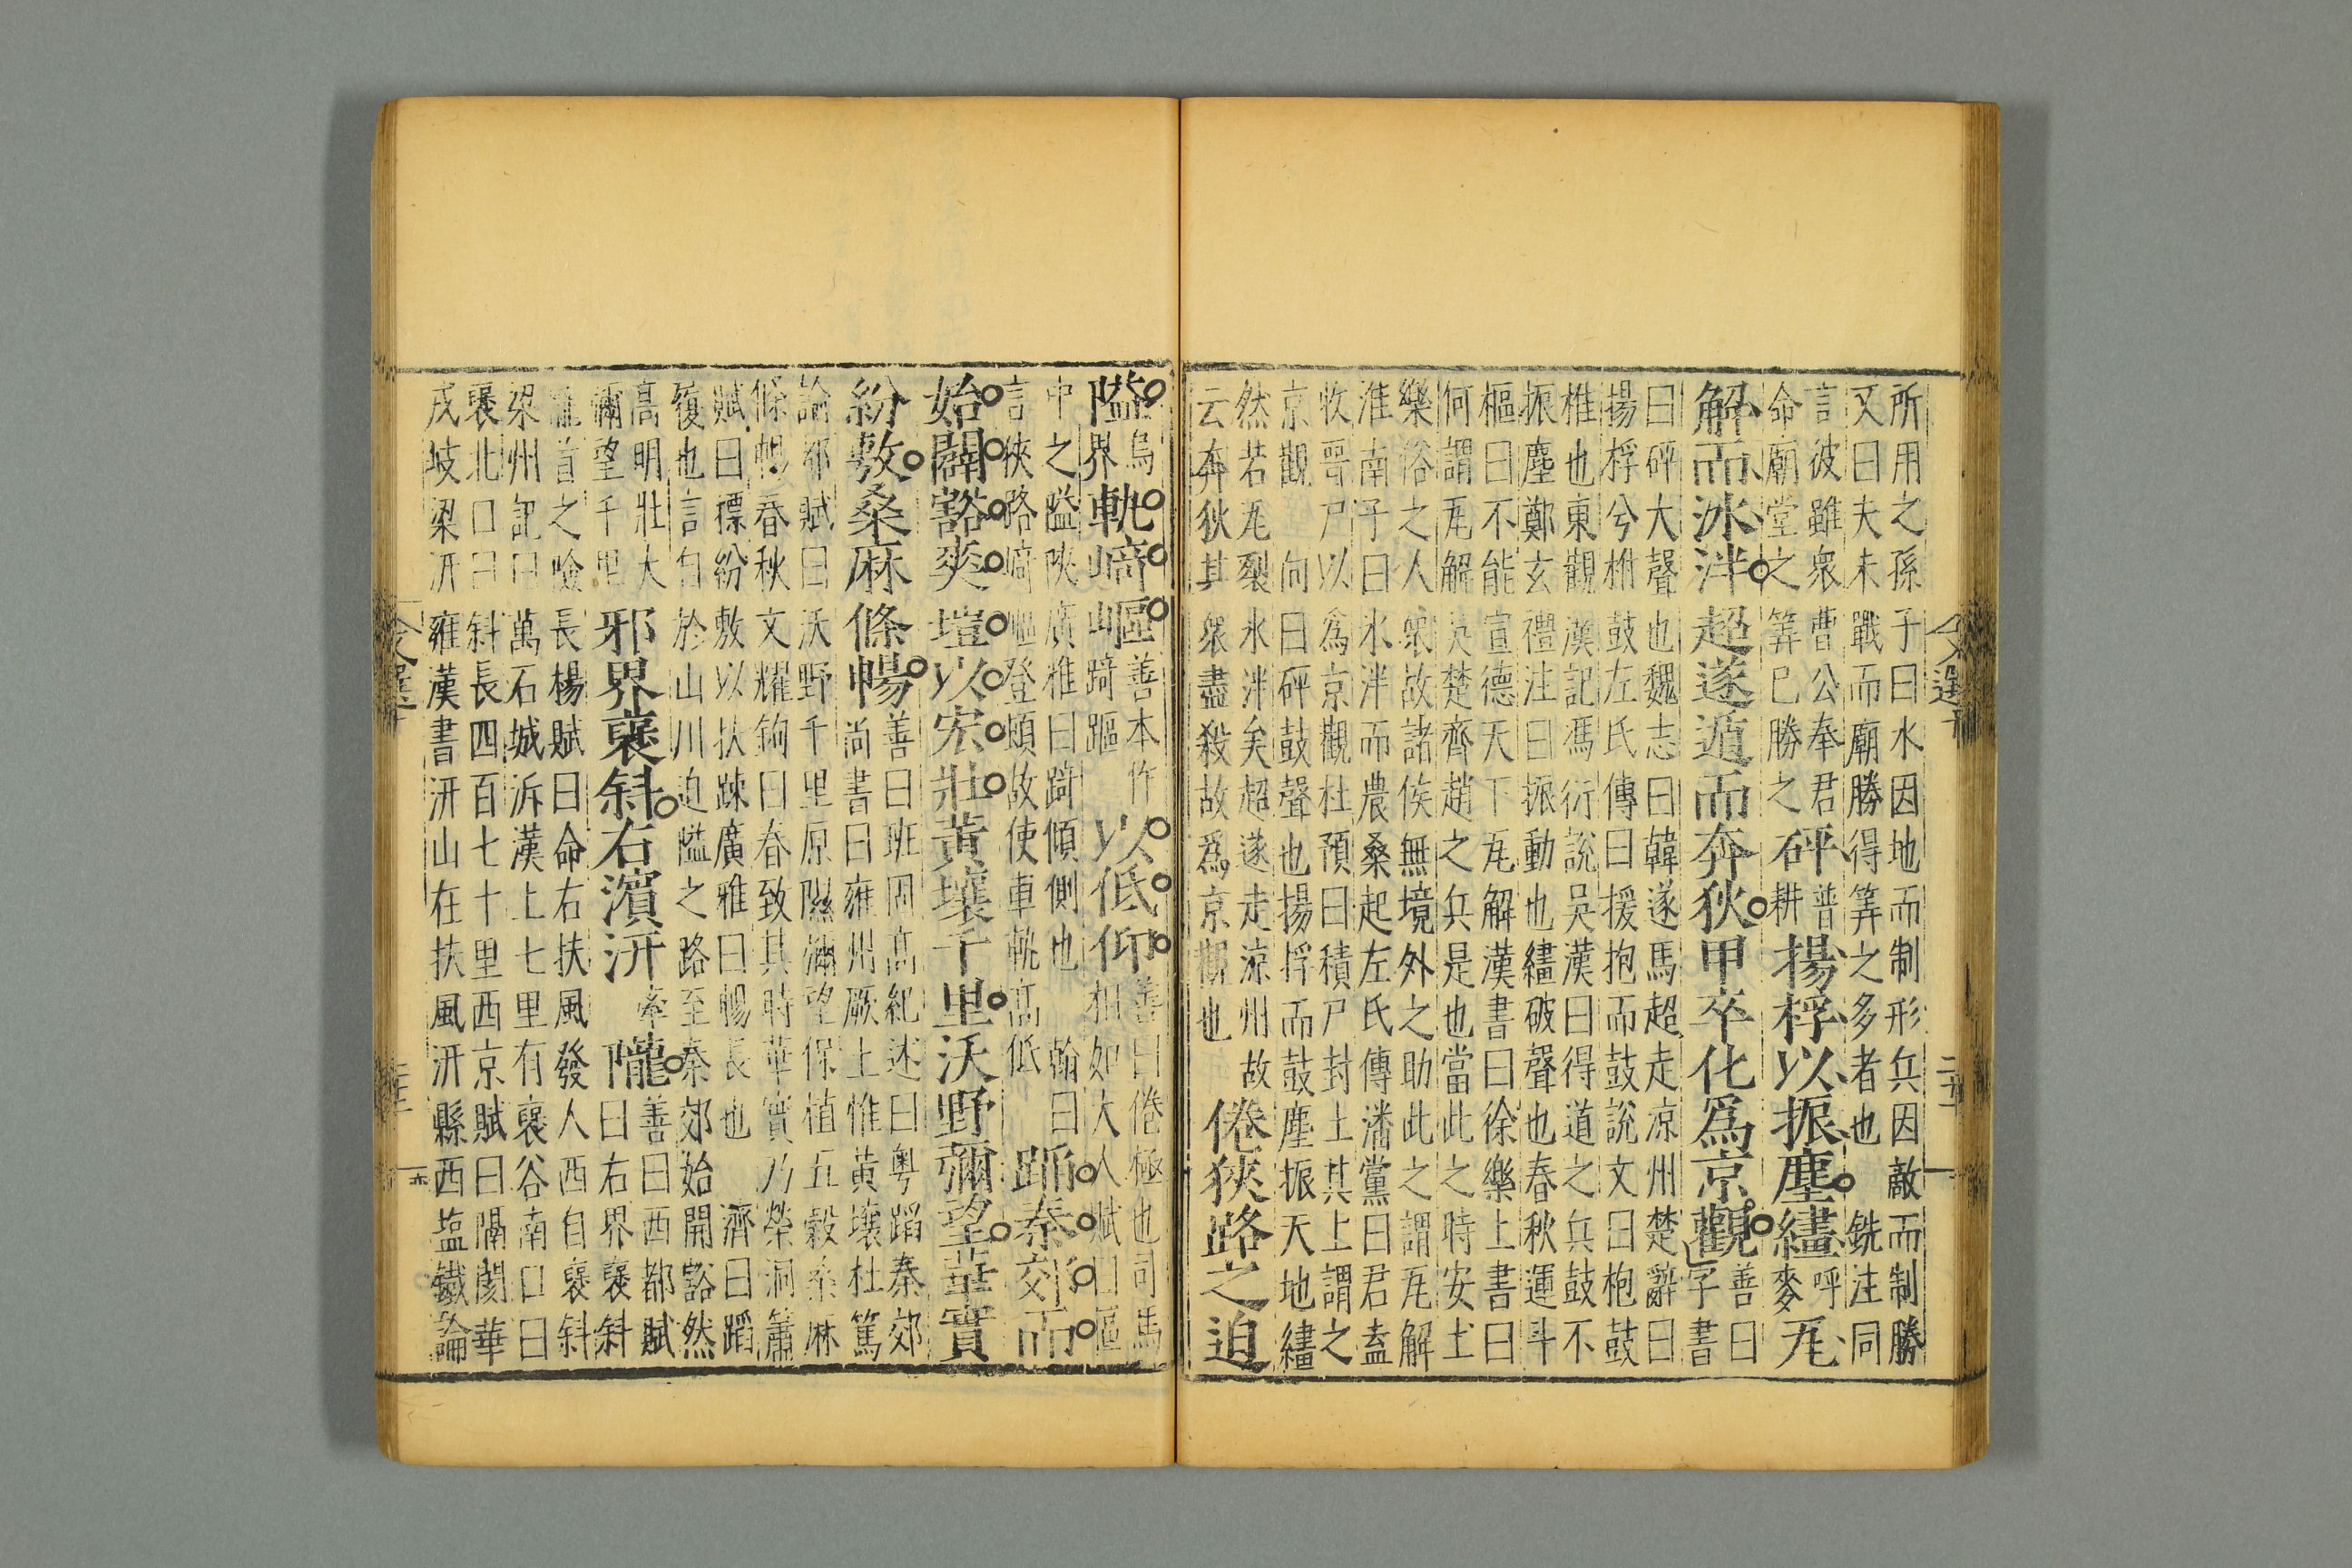 所用之孫子曰水因地而制形兵因敵而制勝
又曰夫未戰而廟勝得筭之多者也 銑注同
言彼雖衆曹公奉君
命廟堂之筭已勝之
砰普耕揚桴以振塵繣呼麥瓦
解而冰泮超遂遁而奔狄甲卒化為京觀善曰字書
曰砰大聲也魏志曰韓遂馬超走凉州楚辭曰
揚桴兮拊鼓左氏傳曰援抱而鼓說文曰枹鼓
椎也東觀漢記馮衍說吳漢曰得道之兵鼓不
振塵鄭玄禮注曰振動也繣破聲也春秋運斗
樞曰不能宣德天下瓦解漢書曰徐樂上書曰
何謂瓦解吳楚齊趙之兵是也當此之時安土
樂俗之人衆故諸侯無境外之助此之謂瓦解
淮南子曰氷泮而農桑起左氏傳潘黨曰君盍
收晉尸以為京觀杜預曰積尸封土其上謂之
京觀 向曰砰鼓聲也揚桴而鼓塵振天地繣
然若瓦裂氷泮矣超遂走凉州故
云奔狄其衆盡殺故為京觀也
倦狹路之迫
隘烏界軌崎嶇善本作踦䠱以低仰善曰倦極也司馬
相如大人賦曰䠱
中之隘陜廣雅曰踦傾側也 翰曰
言狹路崎嶇登頓故使車軌高低
蹈秦郊而
始闢豁爽塏以宏壯黃壤千里沃野彌望華實
紛敷桑麻條暢善曰班固高紀述曰粤蹈秦郊
尚書曰雍州厥土惟黃壤杜篤
論都賦曰沃野千里原隰彌望保植五穀桑麻
條暢春秋文耀鉤曰春致其時華實乃榮洞簫
賦曰標紛敷以扶踈廣雅曰暢長也 濟曰蹈
復也言自於山川迫隘之路至秦郊始開豁然
高明壯大
彌望千里
邪界襃斜右濱汧牽隴善曰西都賦
曰右界襃斜
隴首之嶮長楊賦曰命右扶風發人西自襃斜
梁州記曰萬石城泝漢上七里有襃谷南口曰
襃北口曰斜長四百七十里西京賦曰隔閡華
戎岐梁汧雍漢書汧山在扶風汧縣西塩鐵論
文選十